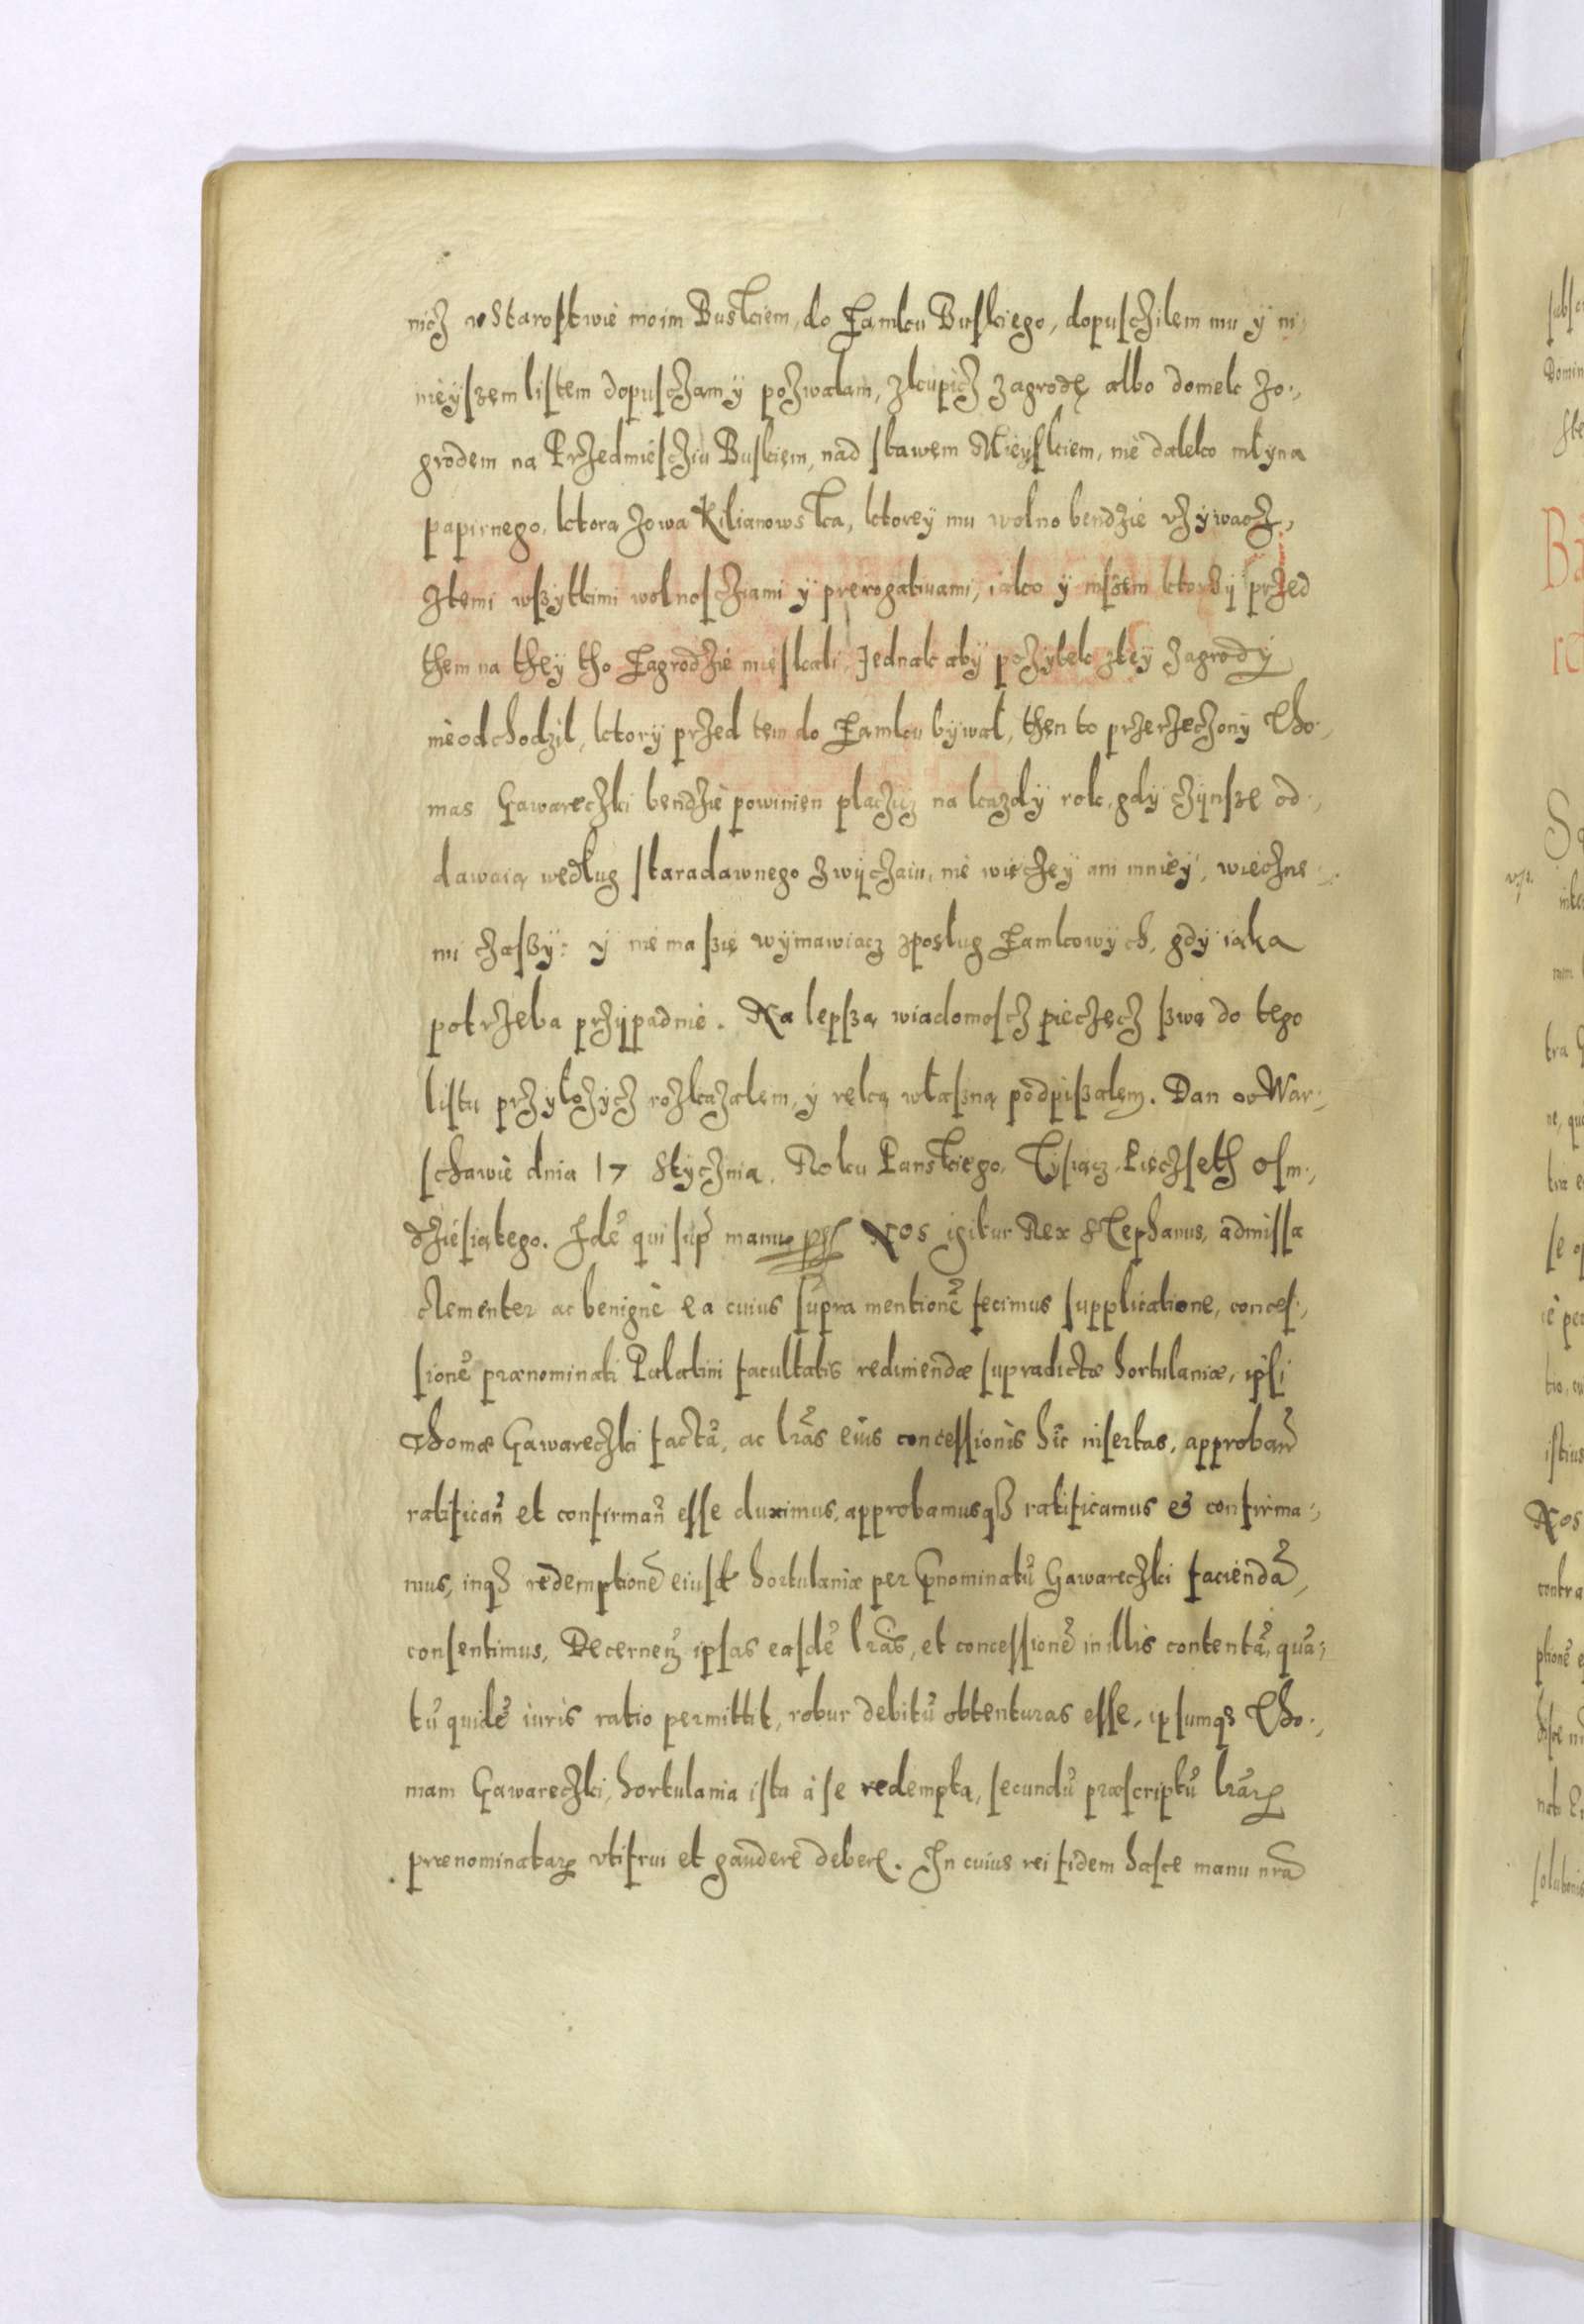 nicz w Starostwie moim Buskiem, do Zamku Buskiego, dopuscziłem mu ÿ ni,
nieÿszem listem dopusczam ÿ pozwalam, zkupicz zagrodę albo domek zo.,
grodem na Przedmiesczu Buskiem, nad stawem Mieÿskiem, nie daleko młyna
papirnego, ktorą zowa Kilianowska, ktoreÿ mu wolno bendzie vzÿwacz,
ztemi wszytkimi wolnosciami ÿ prerogatiuami, iako ÿ inszem ktorzÿ przed
them na theÿ tho Zagrodzie mieskali. Jednak abÿ pozÿtek zteÿ zagrodÿ
nieodchodzil, ktorÿ przed tem do Zamku bÿwał, then to przerzeczonÿ Tho.,
mas Gawareczki bendzie powinien płaczycz na kazdÿ rok, gdÿ czÿnsze od.,
dawaią według staradawnego zwÿczaiu, nie wieczeÿ ani mnieÿ, wieczne
mi czassÿ: ÿ nie ma szię wÿmawiacz zposług Zamkowÿch, gdÿ iaka
potrzeba przÿpadnie. Na lepszą wiadomoscz pieczęcz szwą do tego
listu przyłozÿcz rozkazałem, ÿ ręką właszną podpiszałem. Dan w War.,
schawie dnia 17 Stÿcznia. Roku Panskiego, Tÿsiącz Pięczseth osm.,
dziesiątego. Idē qui sup̄ manu pp̄ Nos igitur Rex Stephanus, admissa
clementer ac benignè ea cuius supra mentionē fecimus supplicatione, conces.,
sionē prænominati Palatini facultatis redimendæ supradictæ hortulaniæ, ipsi
Thomæ Gawareczki factā, ac lrās eius concessionis hic insertas, approban̄
ratifican̄ et confirman̄ esse duximus, approbamusq3 ratificamus & confirma.,
mus, inq3 redemptionē eiusd̄ hortulaniæ per p̄nominatū Gawareczki faciendā,
consentimus, Decernen̄ ipsas easdē lrās, et concessionē in illis contentā, quā,
tū quidē iuris ratio permittit, robur debitū obtenturas esse, ipsumq3 Tho.,
mam Gawareczki, hortulania ista à se redempta, secundū præscriptū lrāꝝ
prænominataꝝ vtifrui et gaudere debere. In cuius rei fidem hasce manu nrā